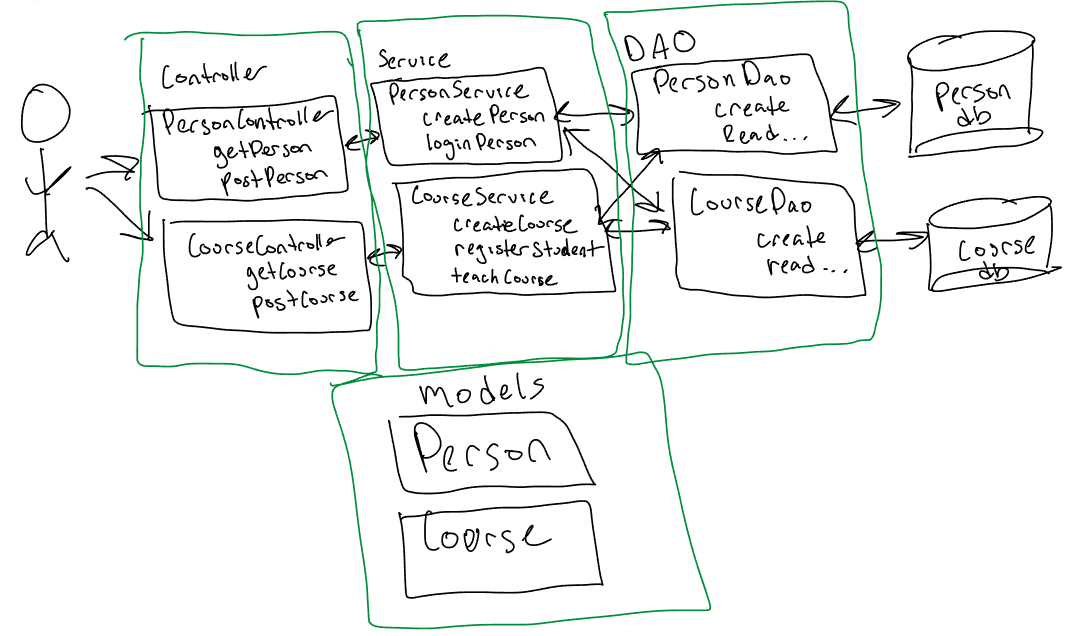 Controller
PersonController
getPerson
postPerson
CourseController
getCourse
postCourse
Service
PersonService
createPerson
loginPerson
CourseService
createCourse
registerStudent
teachCourse
DAO
PersonDao
create
Read...
CourseDao
create
read...
Person
db
Course
db
models
Person
Course